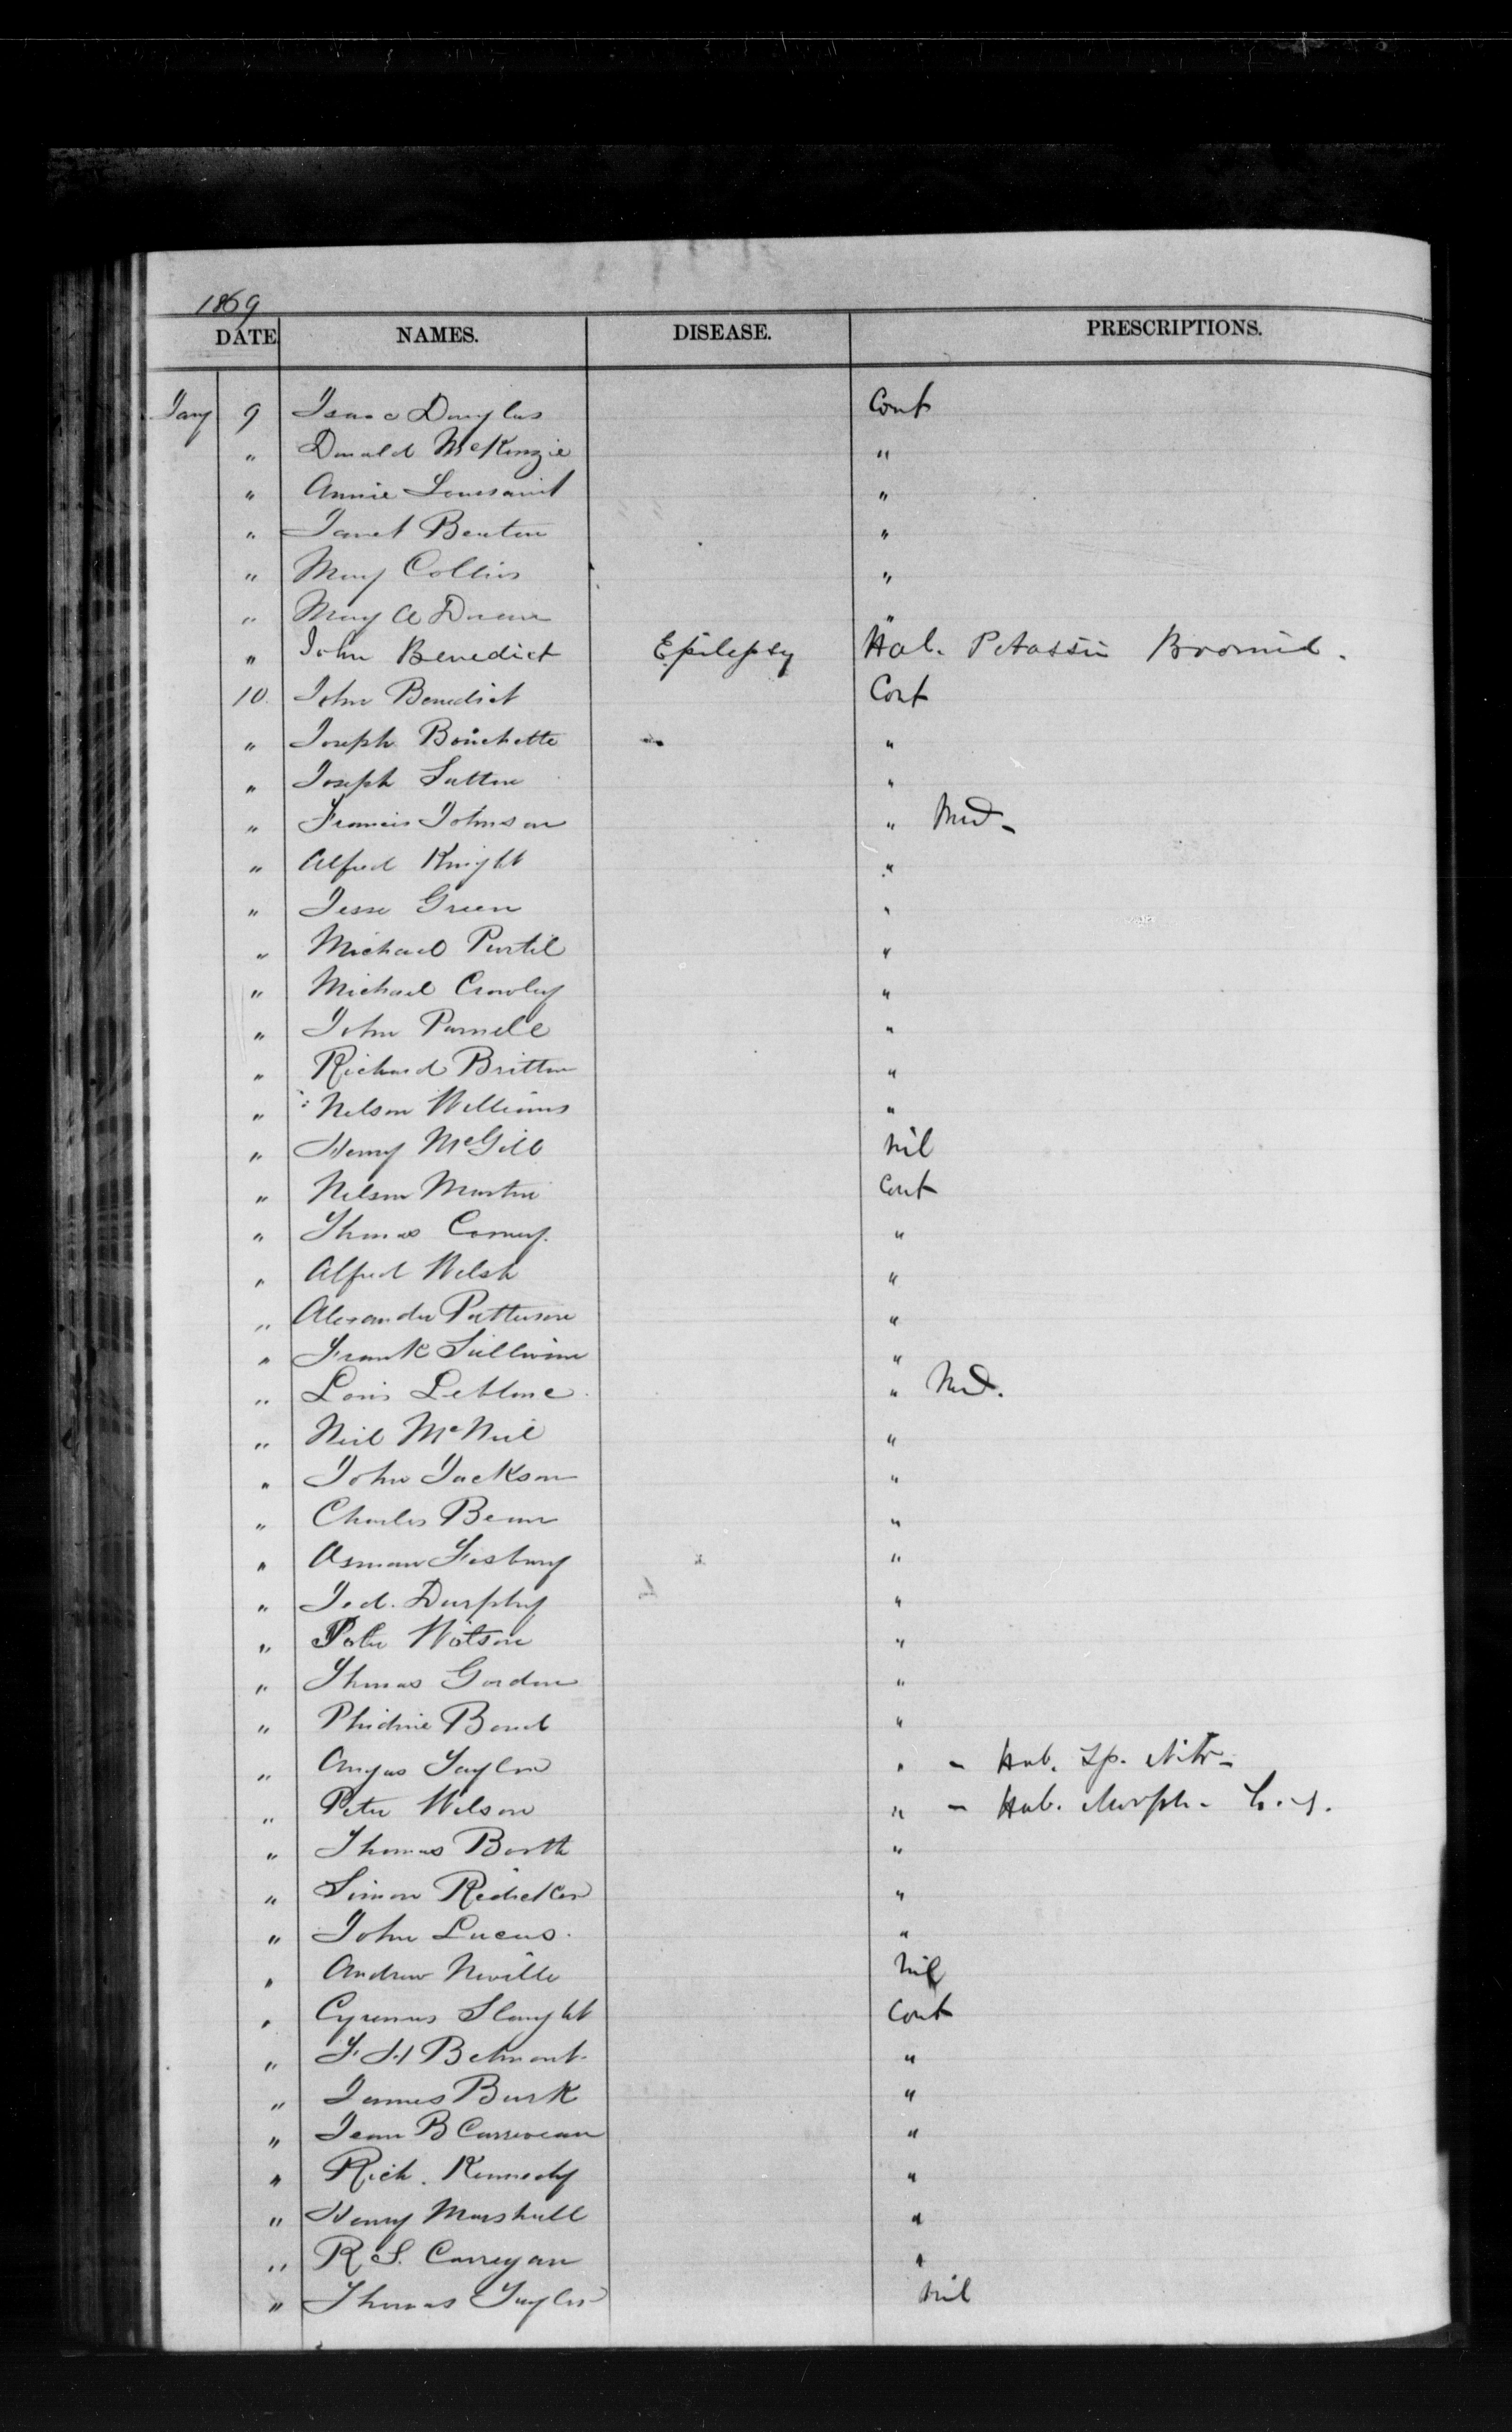 1869
DATE NAMES. DISEASE. PRESCRIPTIONS.
Jany 9 Isaac Douglas Cont
" Donald McKenzie "
" Annie Toussaint "
" Janet Benton "
" Mary Collins "
" Mary A "
" John Benedict Epilepsy Hab. Potassii Bromid.
10. John Benedict Cont
" Joseph Bouchette "
" Joseph Sutton "
" Francis Johnson " Med-
" Alfred Knight "
" Jesse Green "
" Michael Purtil "
" Michael Crowley "
" John Parnell "
" Richard Britton "
" Nelson Williams "
" Henry McGill nil
" Nelson Martin Cont
" Thomas "
" Alfred Welsh "
" Alexander Patterson "
" Frank Sullivan "
" Louis Leblanc " Med.
" Neil McNeil "
" John Jackson "
" Charles Bean "
" "
" Jed. Durphy "
" Watson "
" Thomas Gordon "
" Bond "
" Angus Taylor " - Hab. Sp. Nitr-
" Peter Wilson " - Hab. Morph-
" Thomas Booth "
" Simon "
" John Lucas. "
" Andrew Neville nil
" Cyrenus Slaught Cont
" F H Belmont "
" James Burk "
" Jean B Carriveau "
" Rich. Kennedy "
" Henry Marshall "
" R S. Carregan "
" Thomas Taylor nil